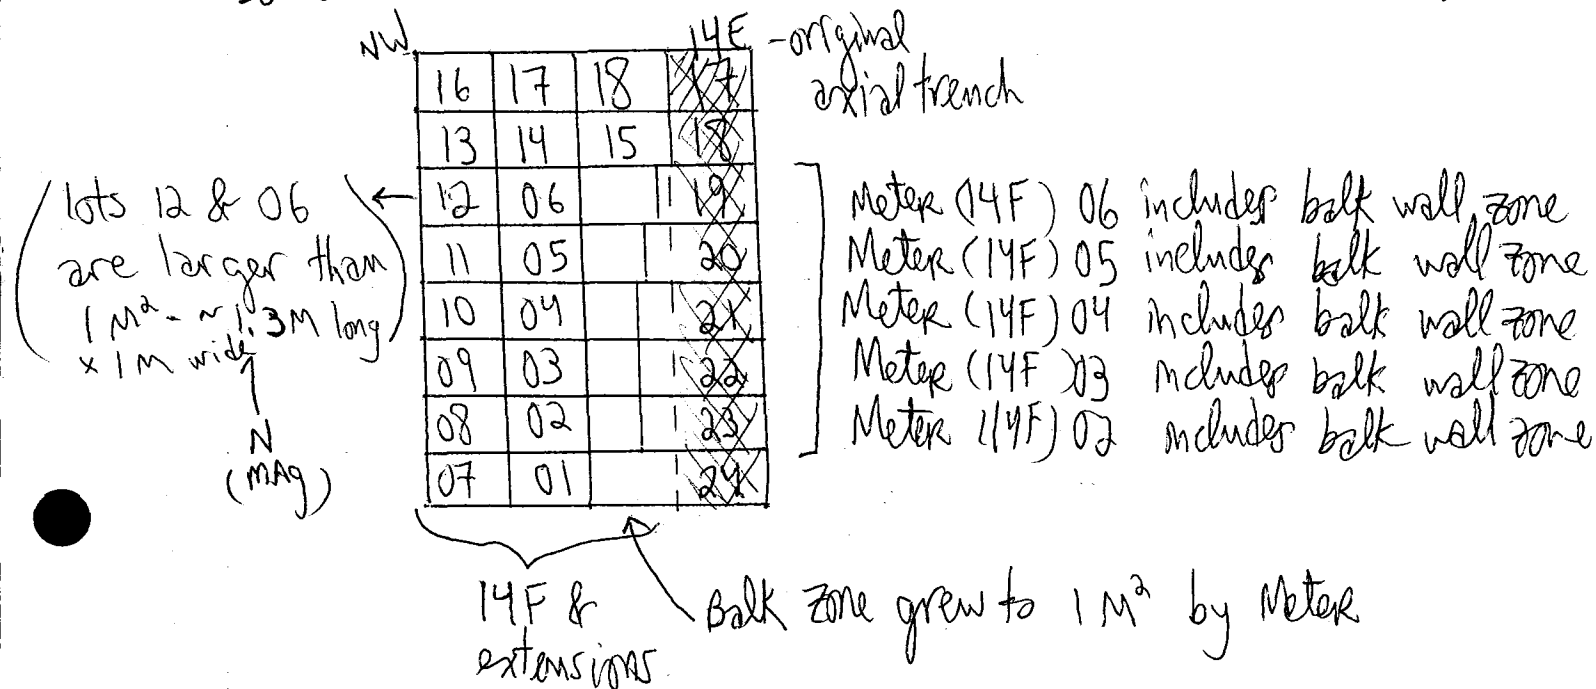 NW 14E - original
axial trench
16 17 18 17
13 14 15 18
12 06 19
11 05 20
10 04 21
09 03 22
08 02 23
07 01 24
lots 12 & 06
are larger than
1 M² - ~ 1.3M long
x 1M wide
N
(MAg)
Meter (14F) 06 includes balk wall zone
Meter (14F) 05 includes balk wall zone
Meter (14F) 04 includes balk wall zone
Meter (14F) 03 includes balk wall zone
Meter (14F) 02 includes balk wall zone
14F &
extensions
Balk zone grew to 1 M² by Meter